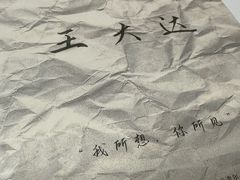 王大达
"我所想，你所见"